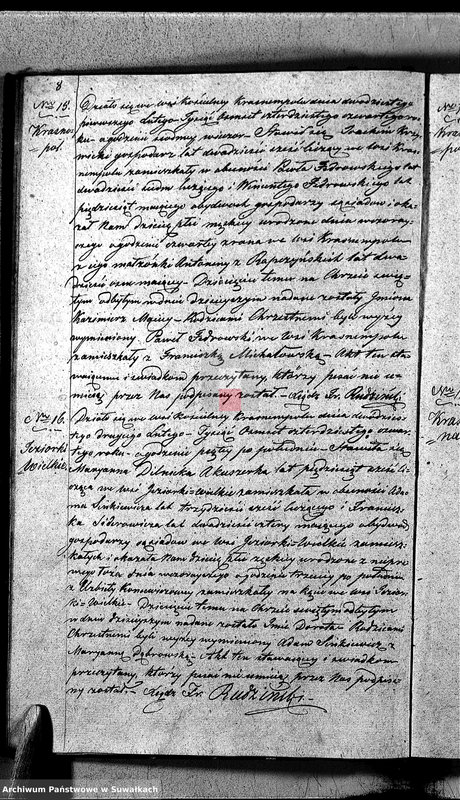 8
Nro 15.
Krasno-
pol.
Działo się we wsi kościelney Krasnempolu dnia dwudziestego
pierwszego Lutego Tysiąc Osmset czterdziestego czwartego ro-
ku o godzinie siodmey wieczor. Stawił się Joachim
gospodarz lat dwadzieścia sześć liczący we wsi Kras-
nempolu zamieszkały w obecności Pawła Fedrowskiego lat
dwadzieścia siedm liczącego i Wincentego Fedrowskiego lat
piędziesiąt maiącego obydwoch gospodarzy sąsiadow i oka-
zał Nam dziecię płci męzkiey urodzone dnia wczoray-
szego o godzinie czwartey z rana we wsi Krasnempolu
z iego małżonki Antoniny z Rapczyńskich lat dwa-
dzieścia maiącey. Dziecięciu temu na Chrzcie świę-
tym odbytym w dniu dzisieyszym nadane zostały Imiona
Kazimierz Maciey. Rodzicami Chrzestnemi byli wyżey
wymieniony Paweł Fedrowski we wsi Krasnempolu
zamieszkały z Franciszką Michałowską. Akt ten sta-
waiącemu i świadkom przeczytany, którzy pisać nie u-
mieią przez Nas podpisany został. Xiądz Fr. Rudziński
Nro 16.
Jeziorki
Wielkie.
Działo się we wsi kościelney Krasnempolu dnia dwudzieste-
go drugiego Lutego Tysiąc Osmset czterdziestego czwar-
tego roku o godzinie piątey po południu. Stawiła się
Maryanna Dilnicka Akuszerka lat piędziesiąt sześć li-
cząca we wsi Jeziorki-Wielkie zamieszkała w obecności Ada-
ma Sinkiewicza lat trzydzieści sześć liczącego i Francisz-
ka Sidorowicza lat dwadzieścia cztery maiącego obydwoch
gospodarzy sąsiadow we wsi Jeziorki-Wielkie zamiesz-
kałych i okazała Nam dziecię płci żeńskiey urodzone z niepra-
wego łoża dnia wczorayszego o godzinie trzeciey po południu
z Urbity zamieszkałey we wsi Jezior-
ki-Wielkie. Dziecięciu temu na Chrzcie świętym odbytym
w dniu dzisieyszym nadane zostało Imie Dorota. Rodzicami
Chrzestnemi byli wyżey wymieniony Adam Sinkiewicz z
Maryanną Dąbrowską. Akt ten stawaiącey i świadkom
przeczytany, którzy pisać nie umieią przez Nas podpisa-
ny został. Xiądz Fr. Rudziński
Archiwum Państwowe w Suwałkach